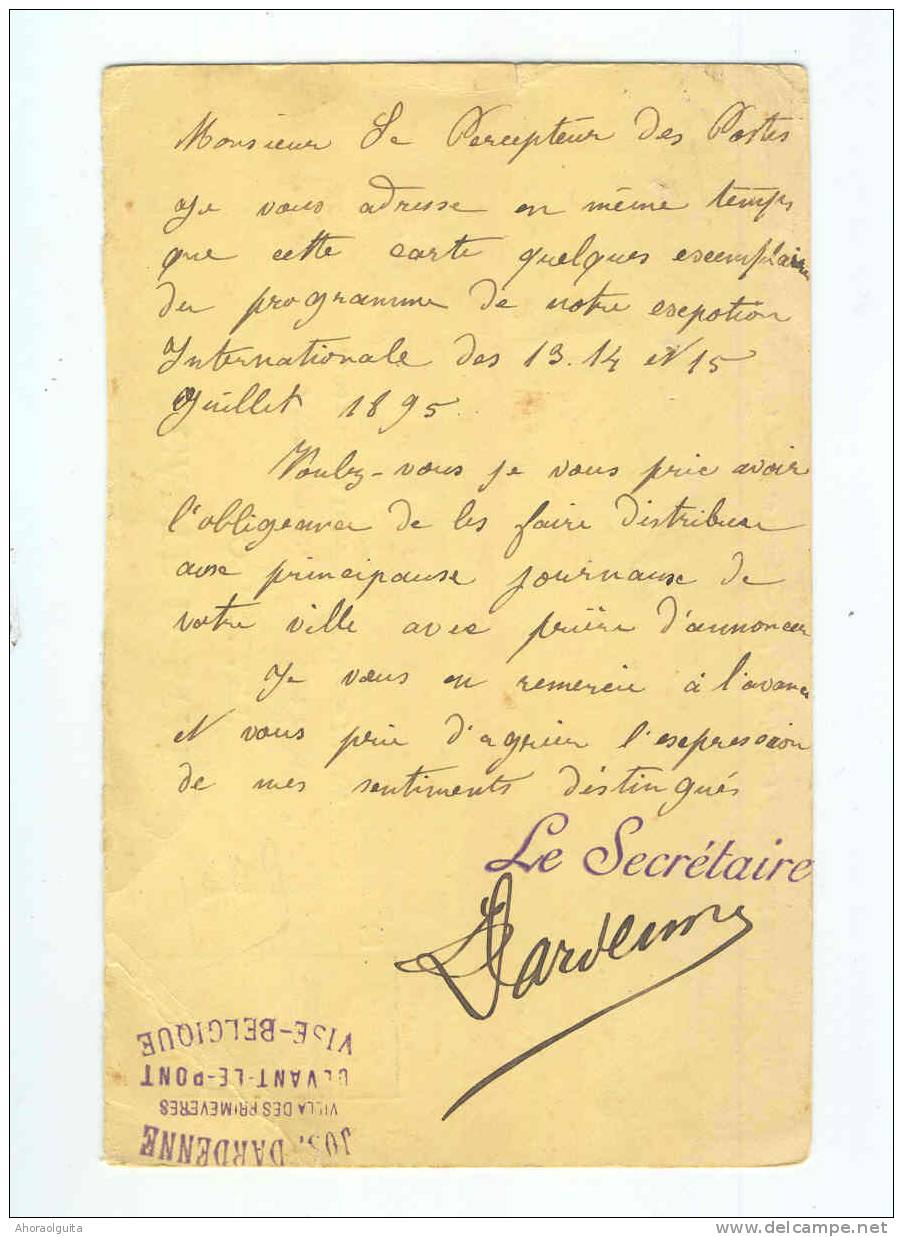 Monsieur Le Percepteur des Postes
Je vous adresse en même temps
que cette carte quelques exemplaires
du programme de notre expotion
Internationale des 13. 14 et 15
Juillet 1895.
Voulez-vous je vous prie avoir
l'obligeance de les faire distribuer
aux principaux journaux de
votre ville avec prière d'annoncer
Je vous en remercie à l'avance
et vous prie d'agréer l'expression
de mes sentiments distingués
Le Secrétaire
JDardenne
JOS. DARDENNE
VILLA DES PRIMEVÈRES
DEVANT-LE-PONT
VISE-BELGIQUE
Ahoraolguita
delcampe.net